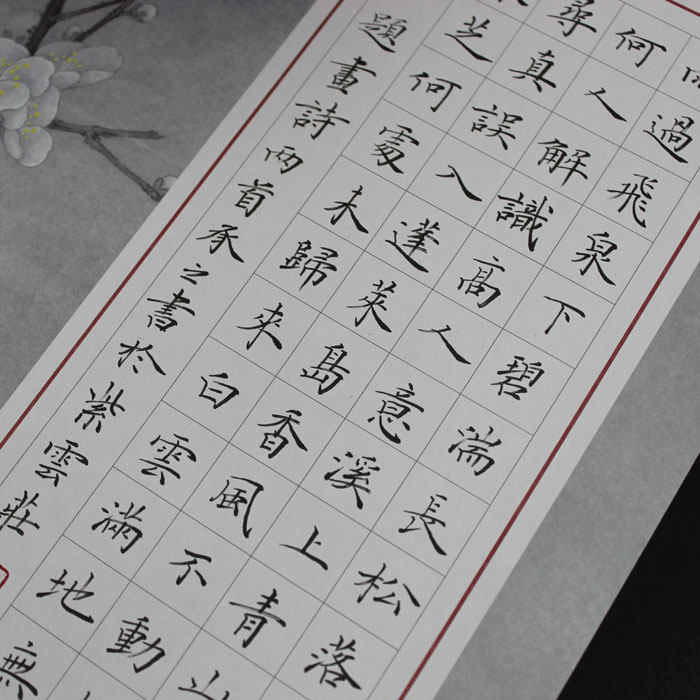 過飛泉下碧湍長松落
何人解識高人意溪上青山
尋真誤入蓬萊島香風不動
芝何處未歸來白雲滿地無
題畫詩兩首承之書於紫雲莊